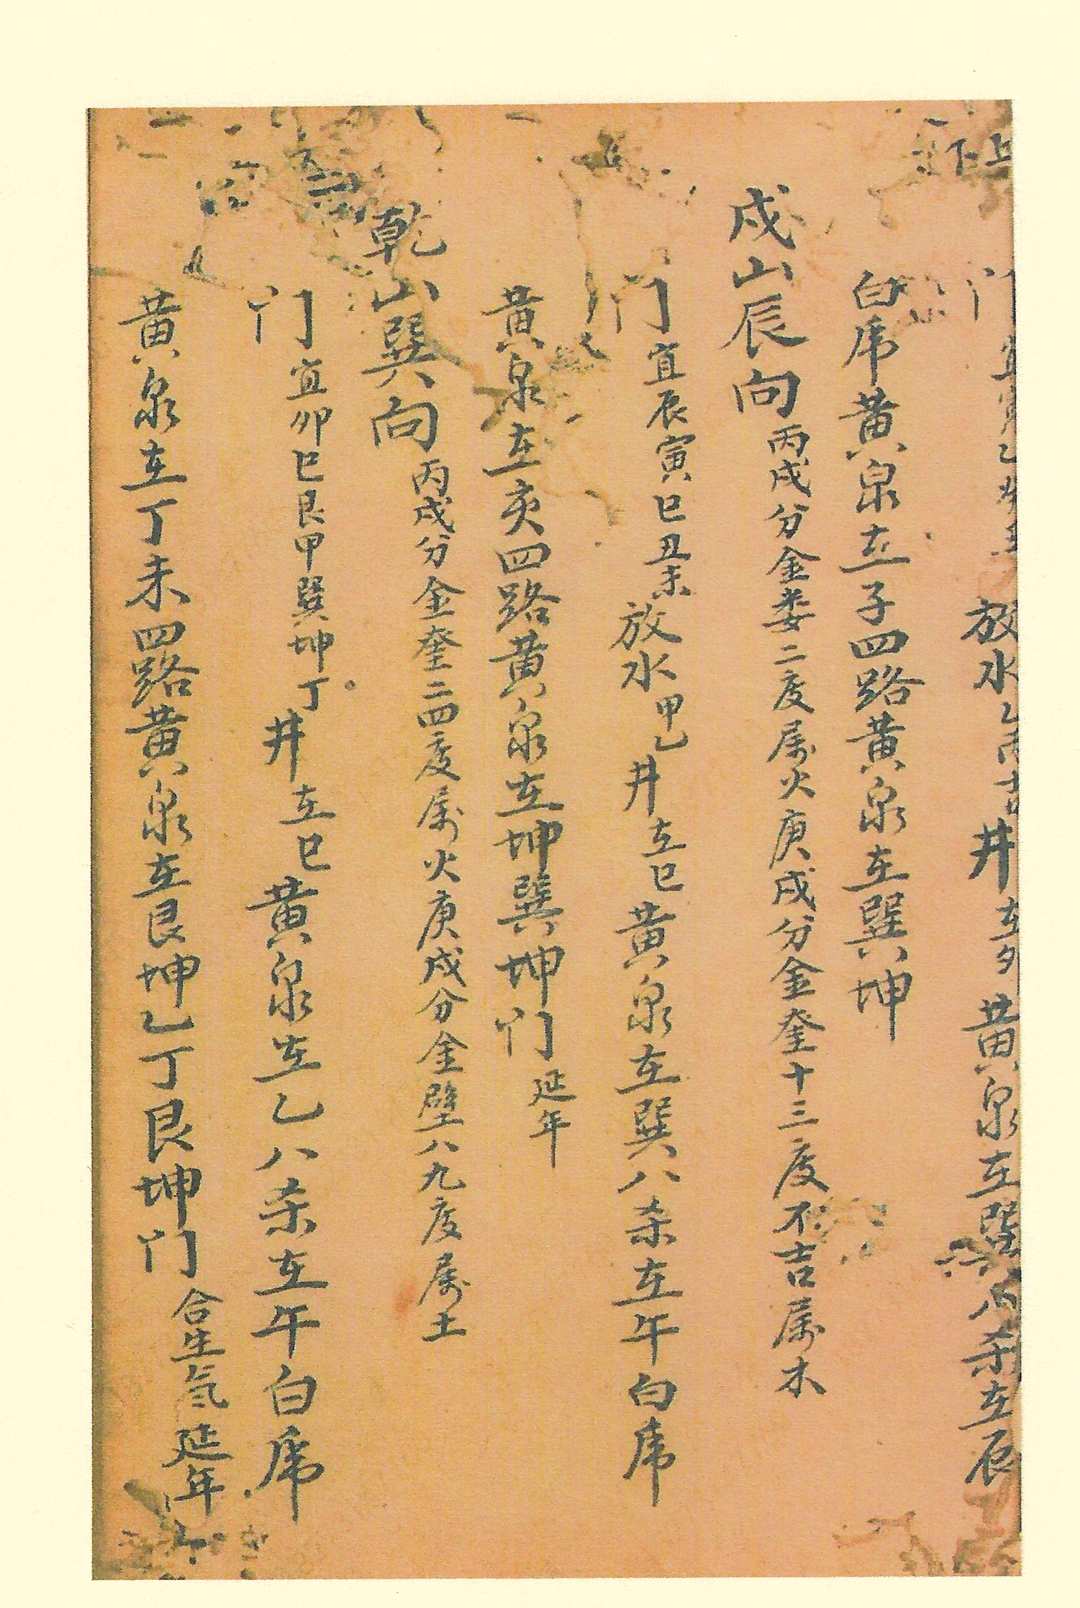 上下
門宜寅乙 放水乙丙吉井在 黄泉在巽八杀在辰
白虎黄泉在子四路黄泉在巽坤
戍山辰向丙戍分金娄二度属火庚戍分金奎十三度不吉属木
门宜辰寅巳丑未放水甲乙井在巳黄泉在巽八杀在午白虎
黄泉在亥四路黄泉在坤巽坤门延年
乾山巽向丙戍分金奎二四度属火庚戍分金壁八九度属土
门宜卯巳艮甲巽坤丁。井在巳黄泉在乙八杀在午白虎
黄泉在丁未四路黄泉在艮坤乙丁艮坤门合生气延年